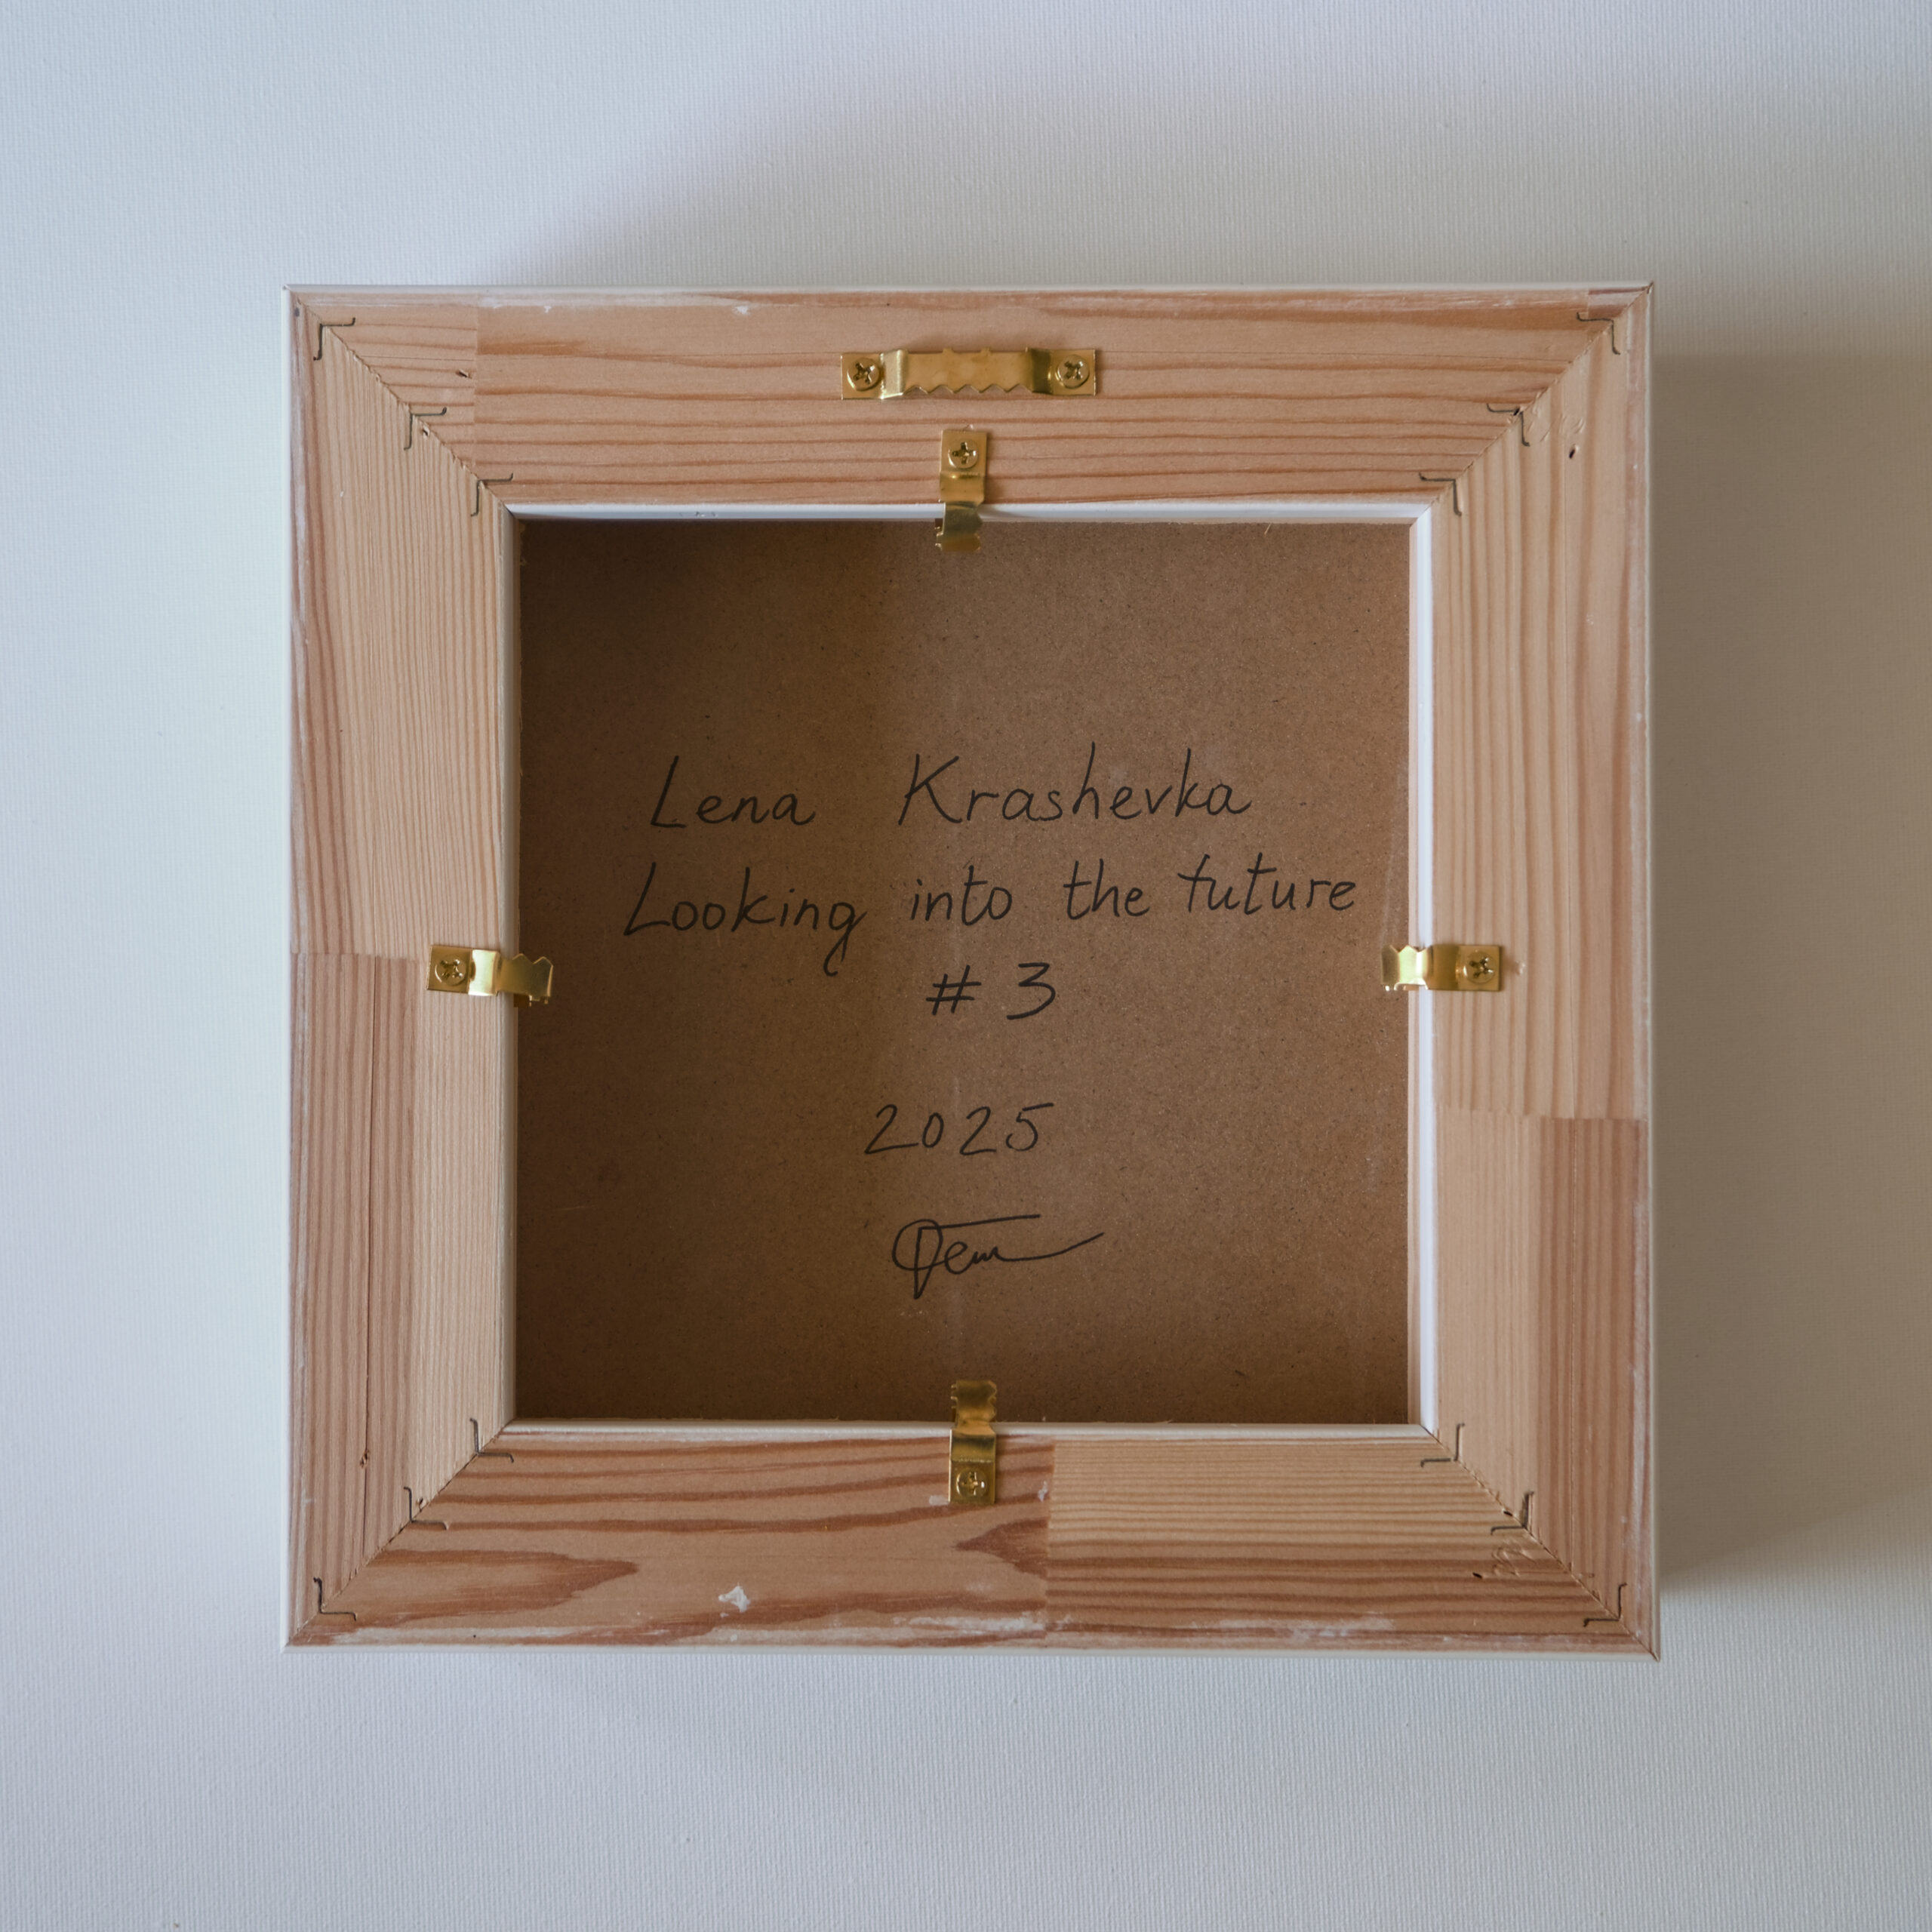 Lena Krashevka
Looking into the future
# 3
2025